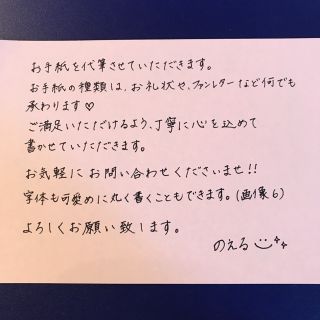 お手紙を代筆させていただきます。
お手紙の種類は、お礼状や、ファンレターなど何でも
承わります♡
ご満足いただけるよう、丁寧に心を込めて
書かせていただきます。
お気軽にお問い合わせくださいませ!!
字体も可愛めに丸く書くこともできます。(画像6)
よろしくお願い致します。
のえる